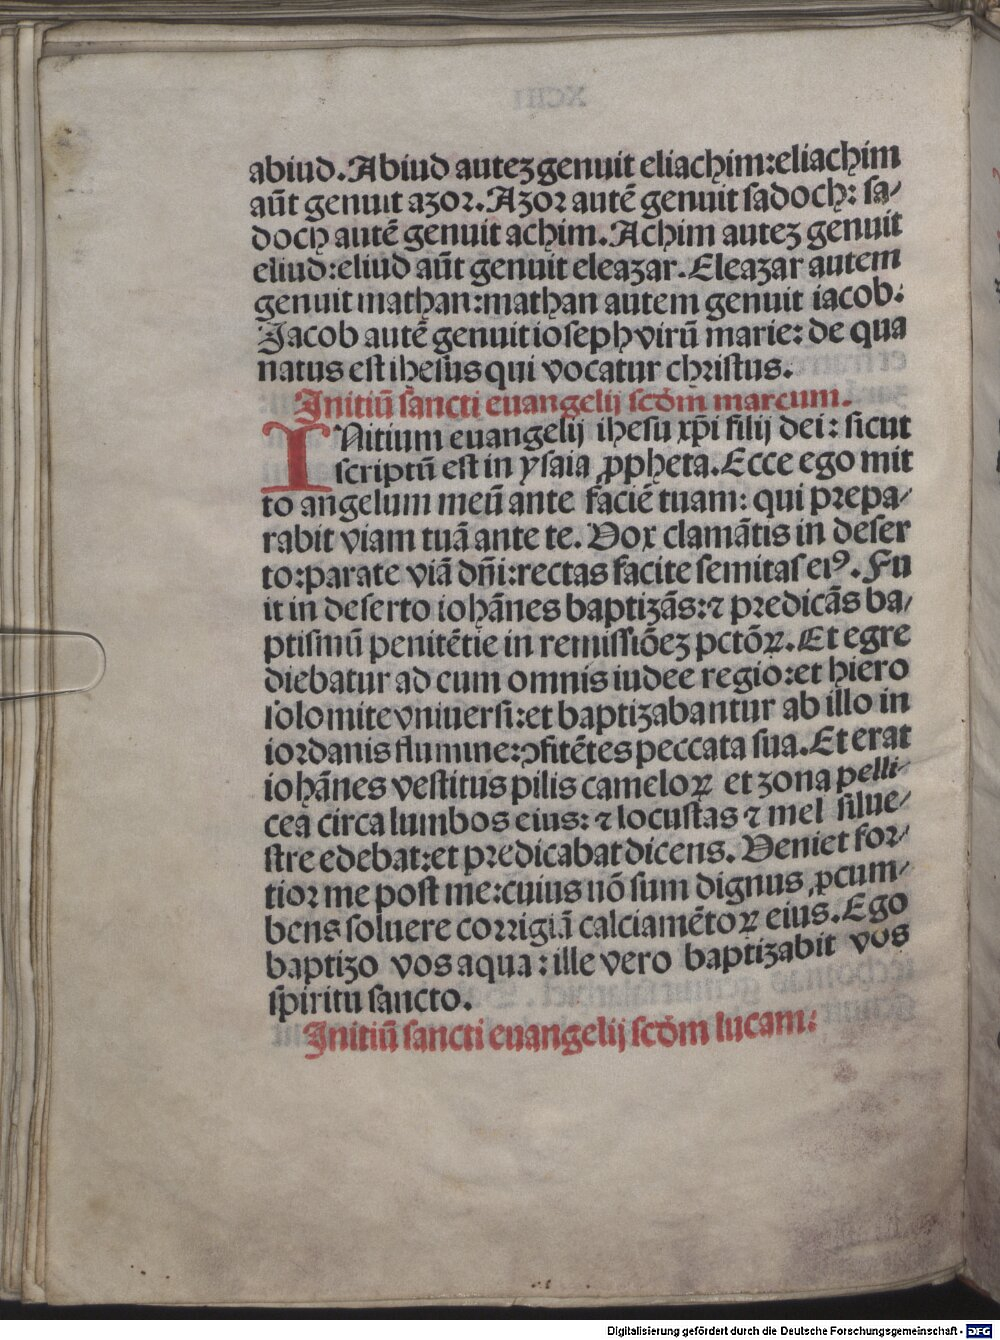 abiud. Abiud autez genuit eliachim: eliachim
aūt genuit azor. Azor autē genuit sadoch: sa-
doch autē genuit achim. Achim autez genuit
eliud: eliud aūt genuit eleazar. Eleazar autem
genuit mathan: mathan autem genuit iacob.
Jacob autē genuit ioseph virū marie: de qua
natus est ihesus qui vocatur christus.
Initiū sancti euangelij scd̄m marcum.
INitium euangelij ihesu xp̄i filij dei: sicut
scriptū est in ysaia ꝓpheta. Ecce ego mit
to angelum meū ante faciē tuam: qui prepa-
rabit viam tuā ante te. Vox clamātis in deser
to: parate viā dn̄i: rectas facite semitas eiꝰ. Fu
it in deserto iohānes baptizās: ⁊ predicās ba-
ptismū penitētie in remissiōez pctōꝝ. Et egre
diebatur ad eum omnis iudee regio: et hiero
solomite vniuersi: et baptizabantur ab illo in
iordanis flumine: ꝯfitētes peccata sua. Et erat
iohānes vestitus pilis cameloꝝ et zona pelli-
cea circa lumbos eius: ⁊ locustas ⁊ mel silue-
stre edebat: et predicabat dicens. Veniet for-
tior me post me: cuius nō sum dignus ꝓcum-
bens soluere corrigiā calciamētoꝝ eius. Ego
baptizo vos aqua: ille vero baptizabit vos
spiritu sancto.
Initiū sancti euangelij scd̄m lucam:
Digitalisierung gefördert durch die Deutsche Forschungsgemeinschaft - DFG